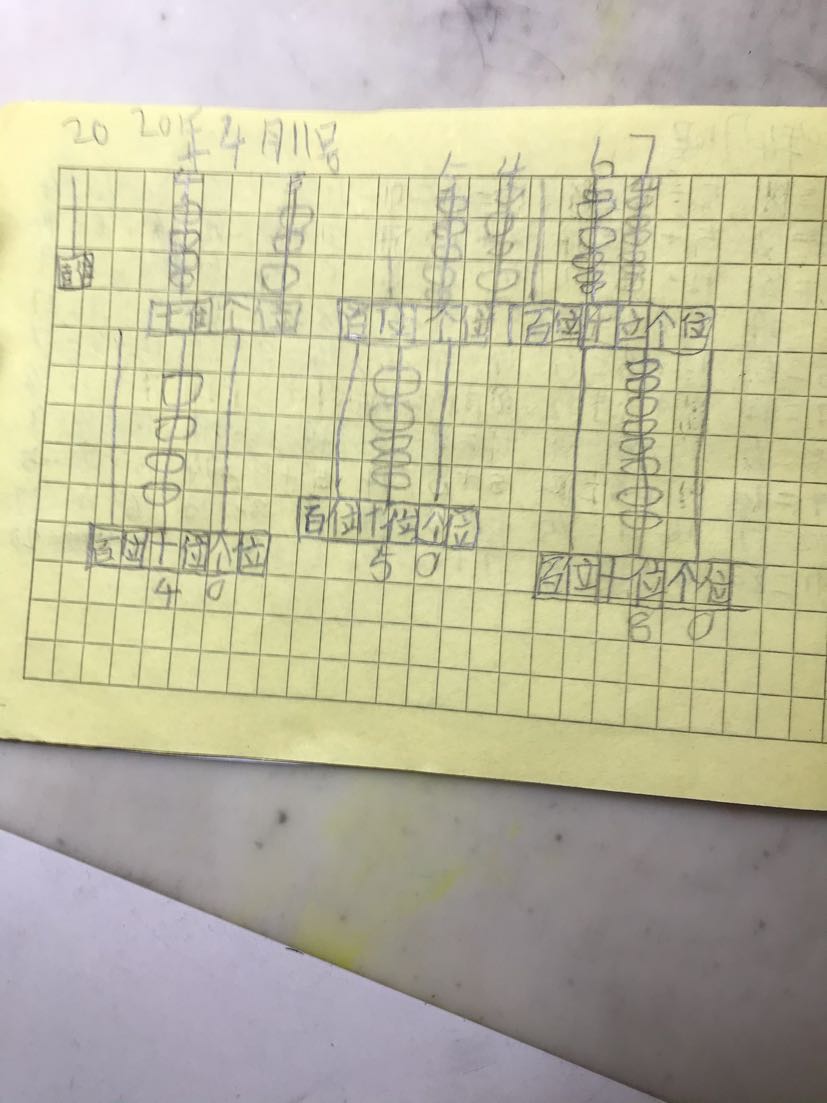 2020年4月11号
5 4 6 7
百位
十位 个位 百位 个位 百位 十位 个位
百位 十位 个位 百位 十位 个位 百位 十位 个位
4 0 5 0 8 0